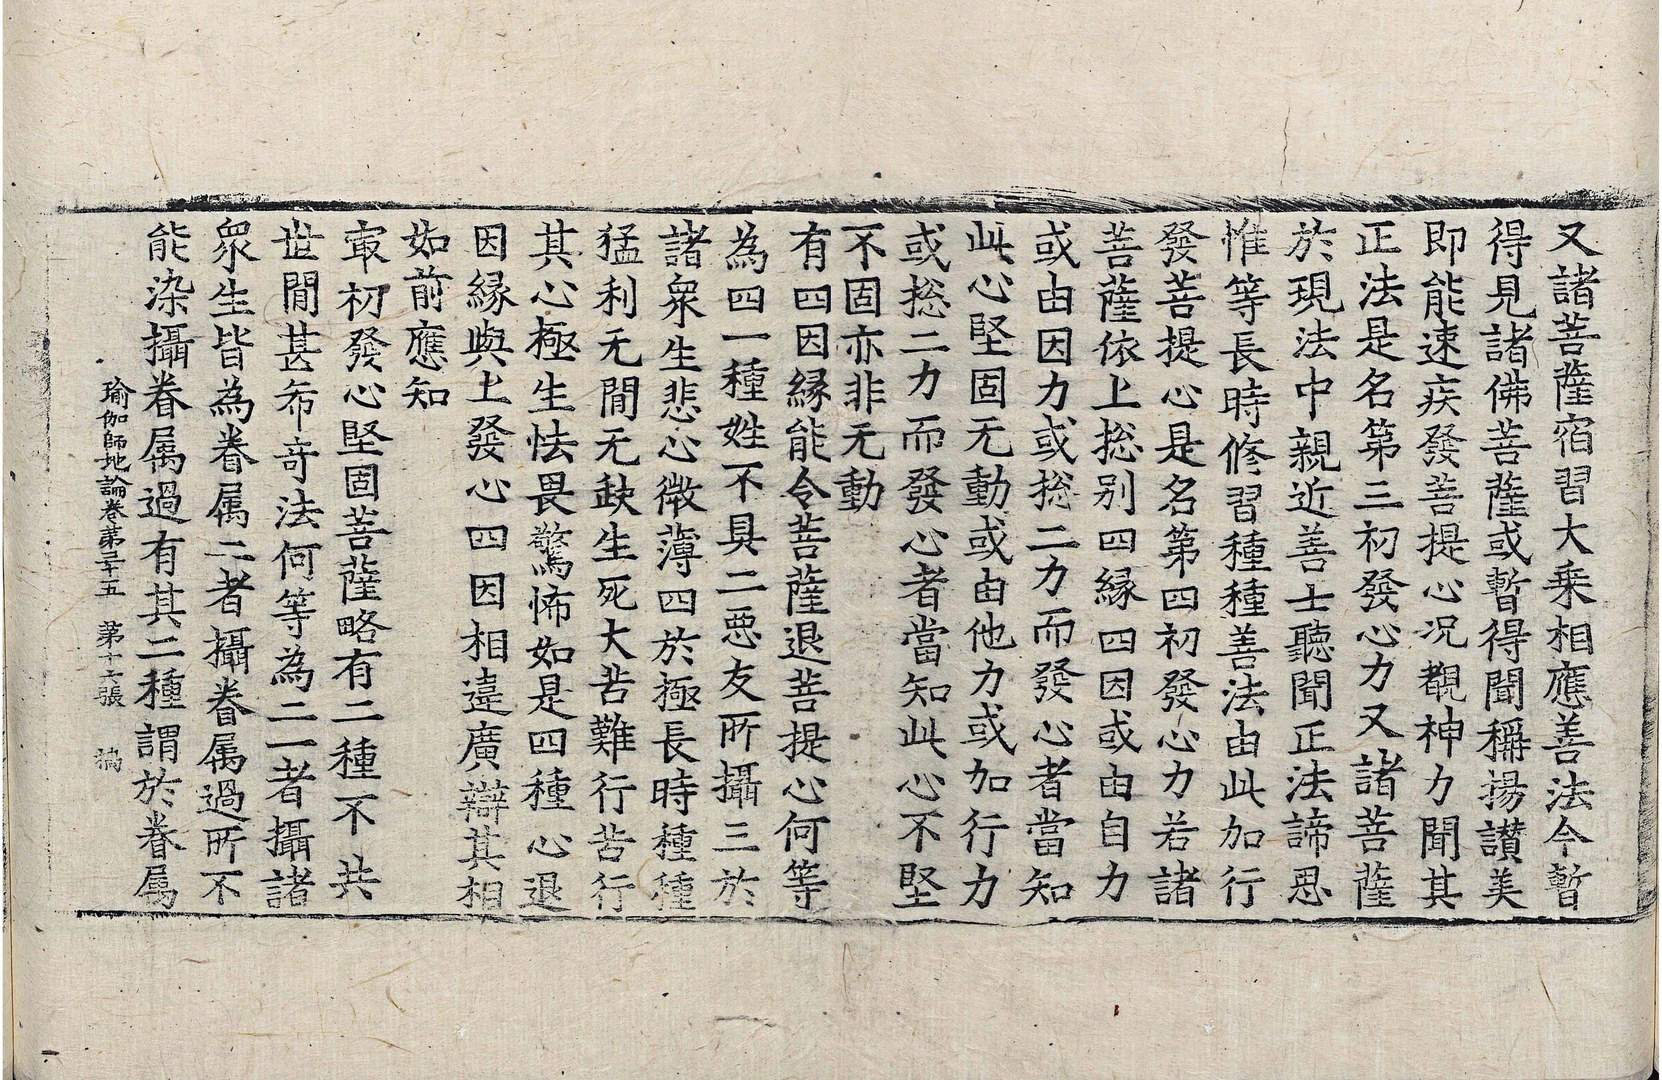 又諸菩薩宿習大乘相應善法今暫
得見諸佛菩薩或暫得聞稱揚讃美
即能速疾發菩提心况覩神力聞其
正法是名第三初發心力又諸菩薩
於現法中親近善士聽聞正法諦思
惟等長時修習種種善法由此加行
發菩提心是名第四初發心力若諸
菩薩依上捴别四縁四因或由自力
或由因力或捴二力而發心者當知
此心堅固无動或由他力或加行力
或捴二力而發心者當知此心不堅
不固亦非无動
有四因縁能令菩薩退菩提心何等
為四一種姓不具二惡友所攝三於
諸衆生悲心微薄四於極長時種種
猛利无間无缺生死大苦難行苦行
其心極生怯畏驚怖如是四種心退
因縁與上發心四因相違廣辯其相
如前應知
最初發心堅固菩薩略有二種不共
世間甚希奇法何等為二一者攝諸
衆生皆為眷属二者攝眷属過所不
能染攝眷属過有其二種謂於眷属
瑜伽師地論卷第三十五 第十六張